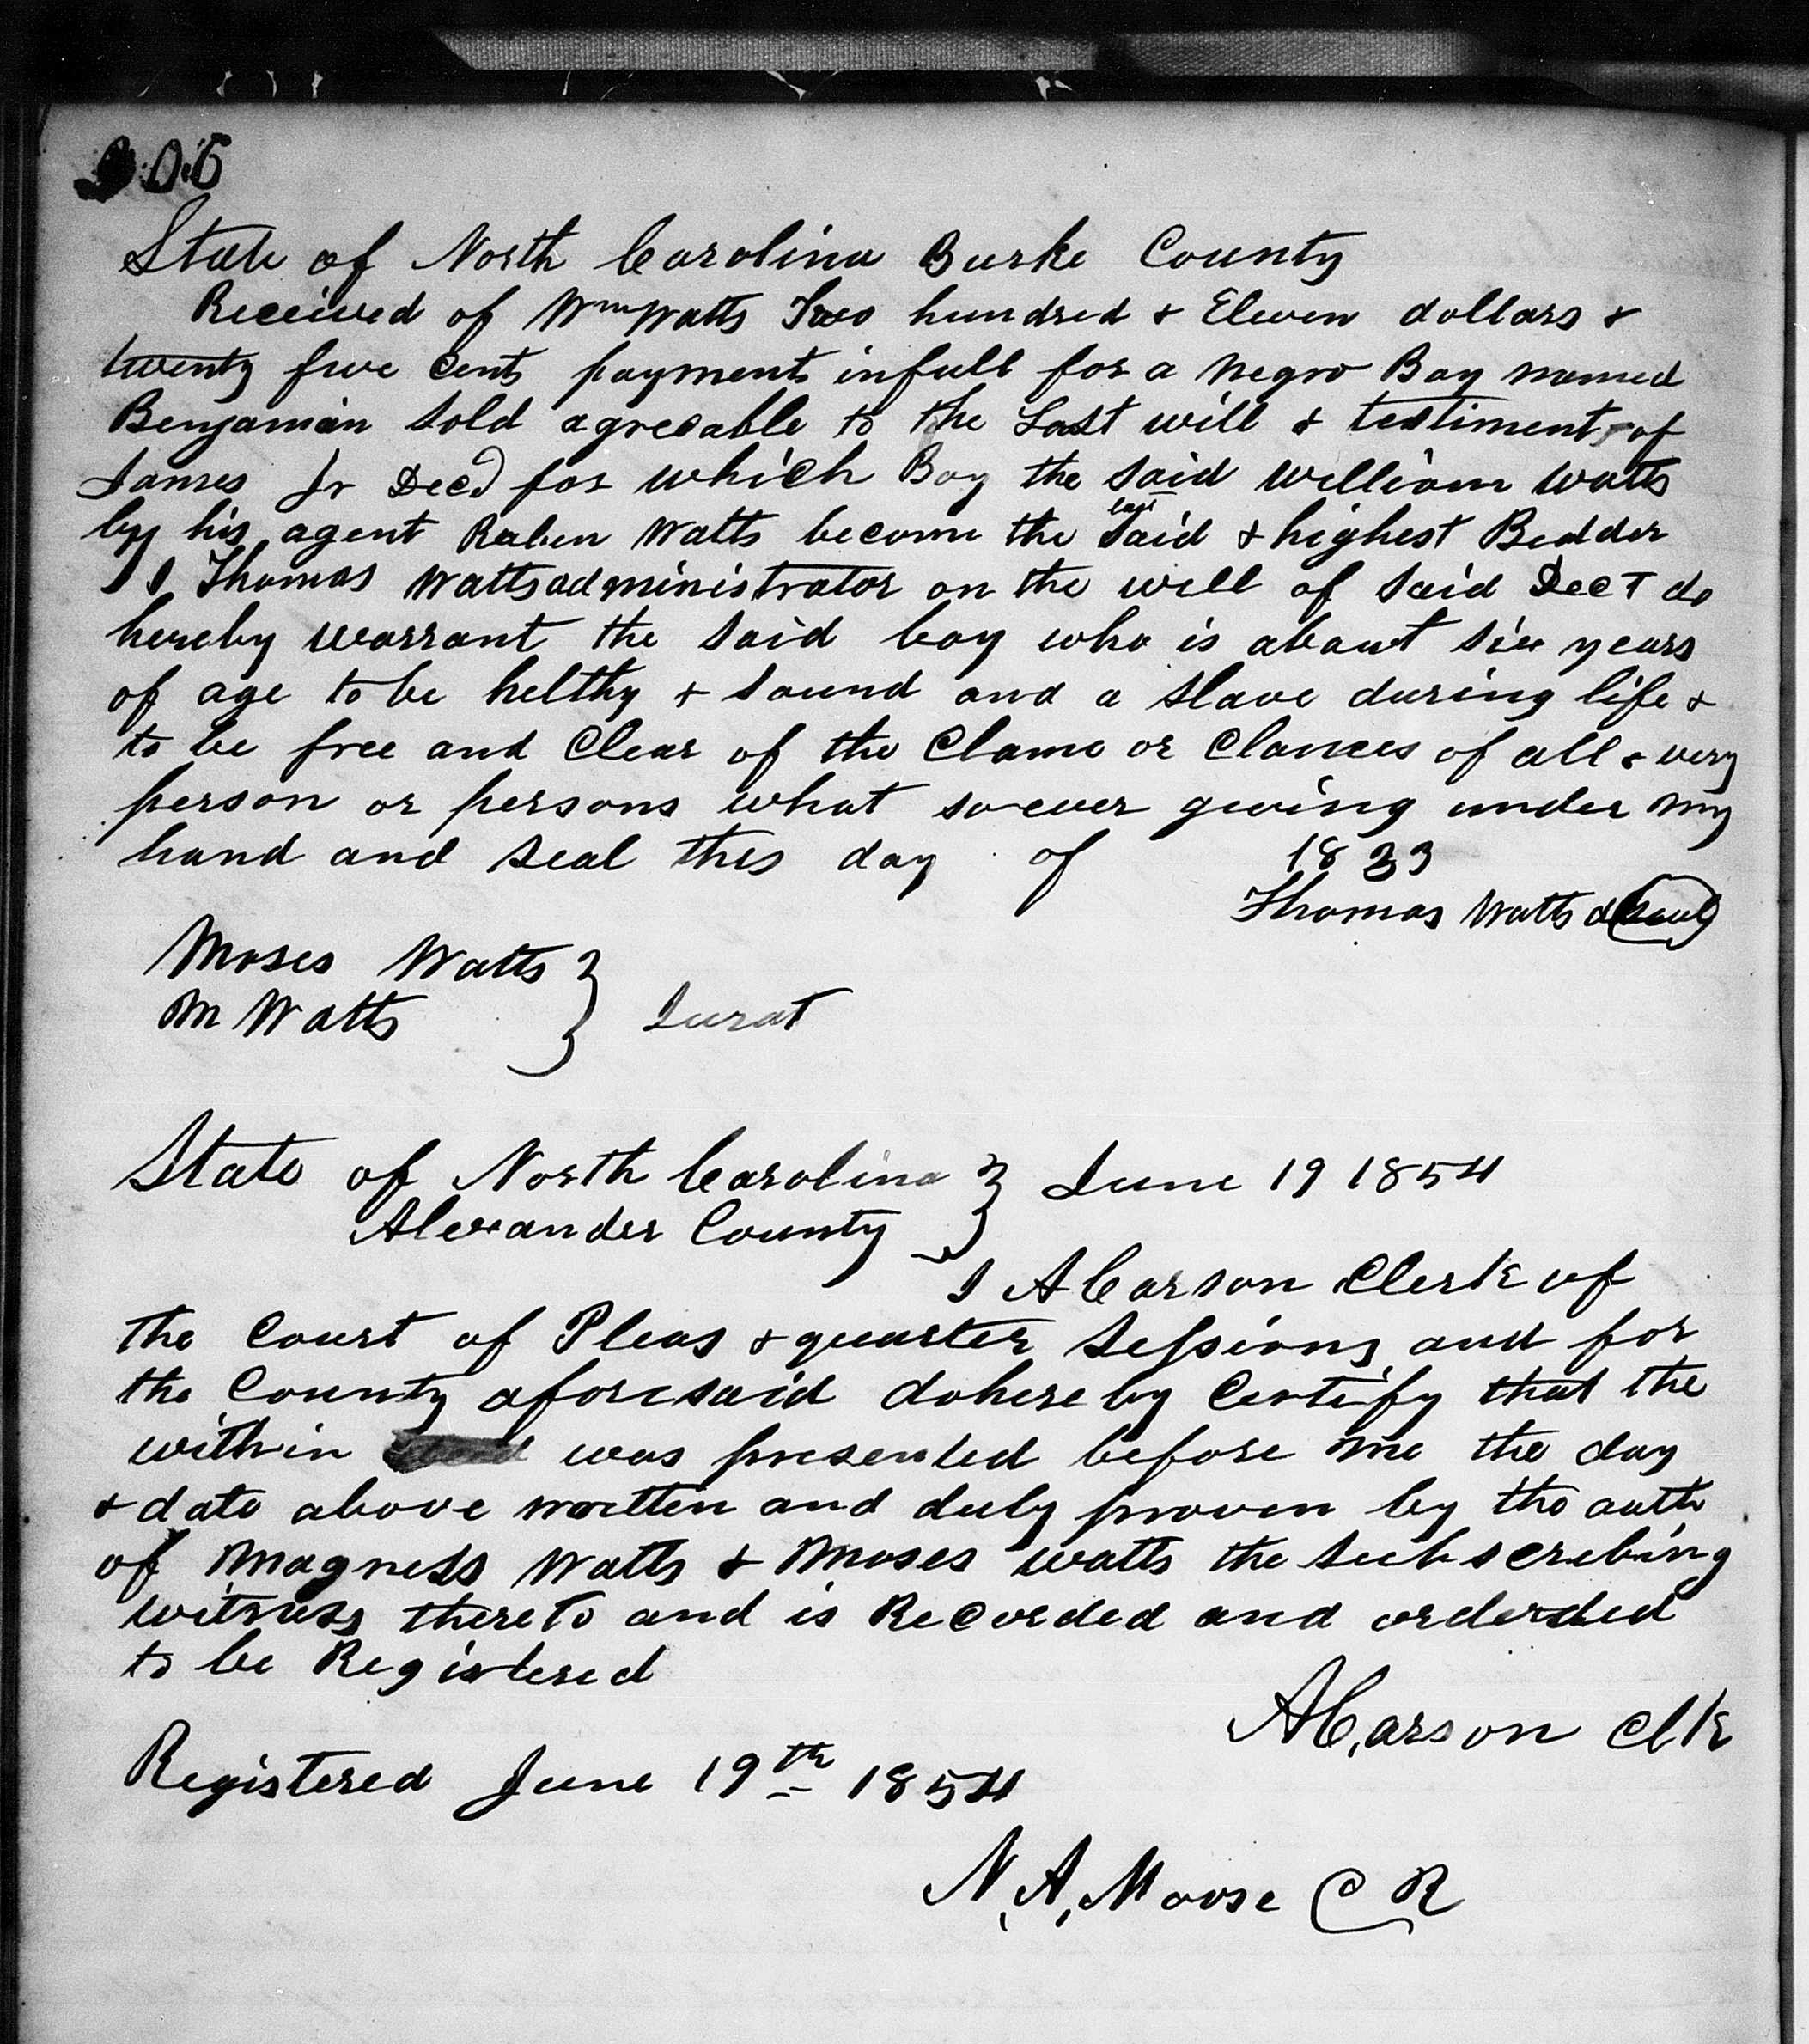 206
State of North Carolina Burke County
Received of Wm Watts Two hundred & Eleven dollars &
twenty five Cents payment in full for a Negro Boy named
Benjamin Sold agreeable to the Last will & testiment of
James Jr Decd for which Boy the said William Watts
by his agent Ruben Watts become the last said & highest Bedder
I Thomas Watts administrator on the will of said Decd do
hereby warrant the said boy who is about six years
of age to be helthy & sound and a slave during life &
to be free and Clear of the Clame or Clames of all & very
person or persons what so ever giving under my
hand and seal this day of 1833
Thomas Watts (seal)
Moses Watts
M Watts } Jurat
State of North Carolina } June 19 1854
Alexander County
I A Carson Clerk of
the Court of Pleas & quarter Sessions and for
the County aforesaid do hereby Certify that the
within was presented before me the day
& date above written and duly proven by the oath
of Magness Watts & Moses Watts the subscribing
witness thereto and is Recorded and orderded
to be Registered
A Carson Clk
Registered June 19th 1854
N. A. Moose C R